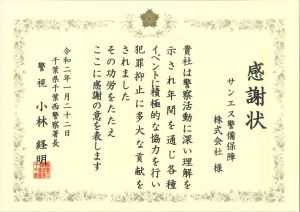 感謝状
サンエス警備保障
株式会社 様
貴社は警察活動に深い理解を
示され年間を通じ各種
イベントに積極的な協力を行い
犯罪抑止に多大な貢献を
されました
その功労をたたえ
ここに感謝の意を表します
令和二年一月二十二日
千葉県千葉西警察署長
警視 小林経明